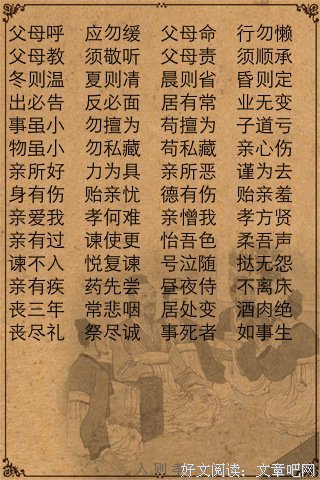 父母呼 应勿缓 父母命 行勿懒
父母教 须敬听 父母责 须顺承
冬则温 夏则凊 晨则省 昏则定
出必告 反必面 居有常 业无变
事虽小 勿擅为 苟擅为 子道亏
物虽小 勿私藏 苟私藏 亲心伤
亲所好 力为具 亲所恶 谨为去
身有伤 贻亲忧 德有伤 贻亲羞
亲爱我 孝何难 亲憎我 孝方贤
亲有过 谏使更 怡吾色 柔吾声
谏不入 悦复谏 号泣随 挞无怨
亲有疾 药先尝 昼夜侍 不离床
丧三年 常悲咽 居处变 酒肉绝
丧尽礼 祭尽诚 事死者 如事生
入则孝
好文阅读：文章吧网